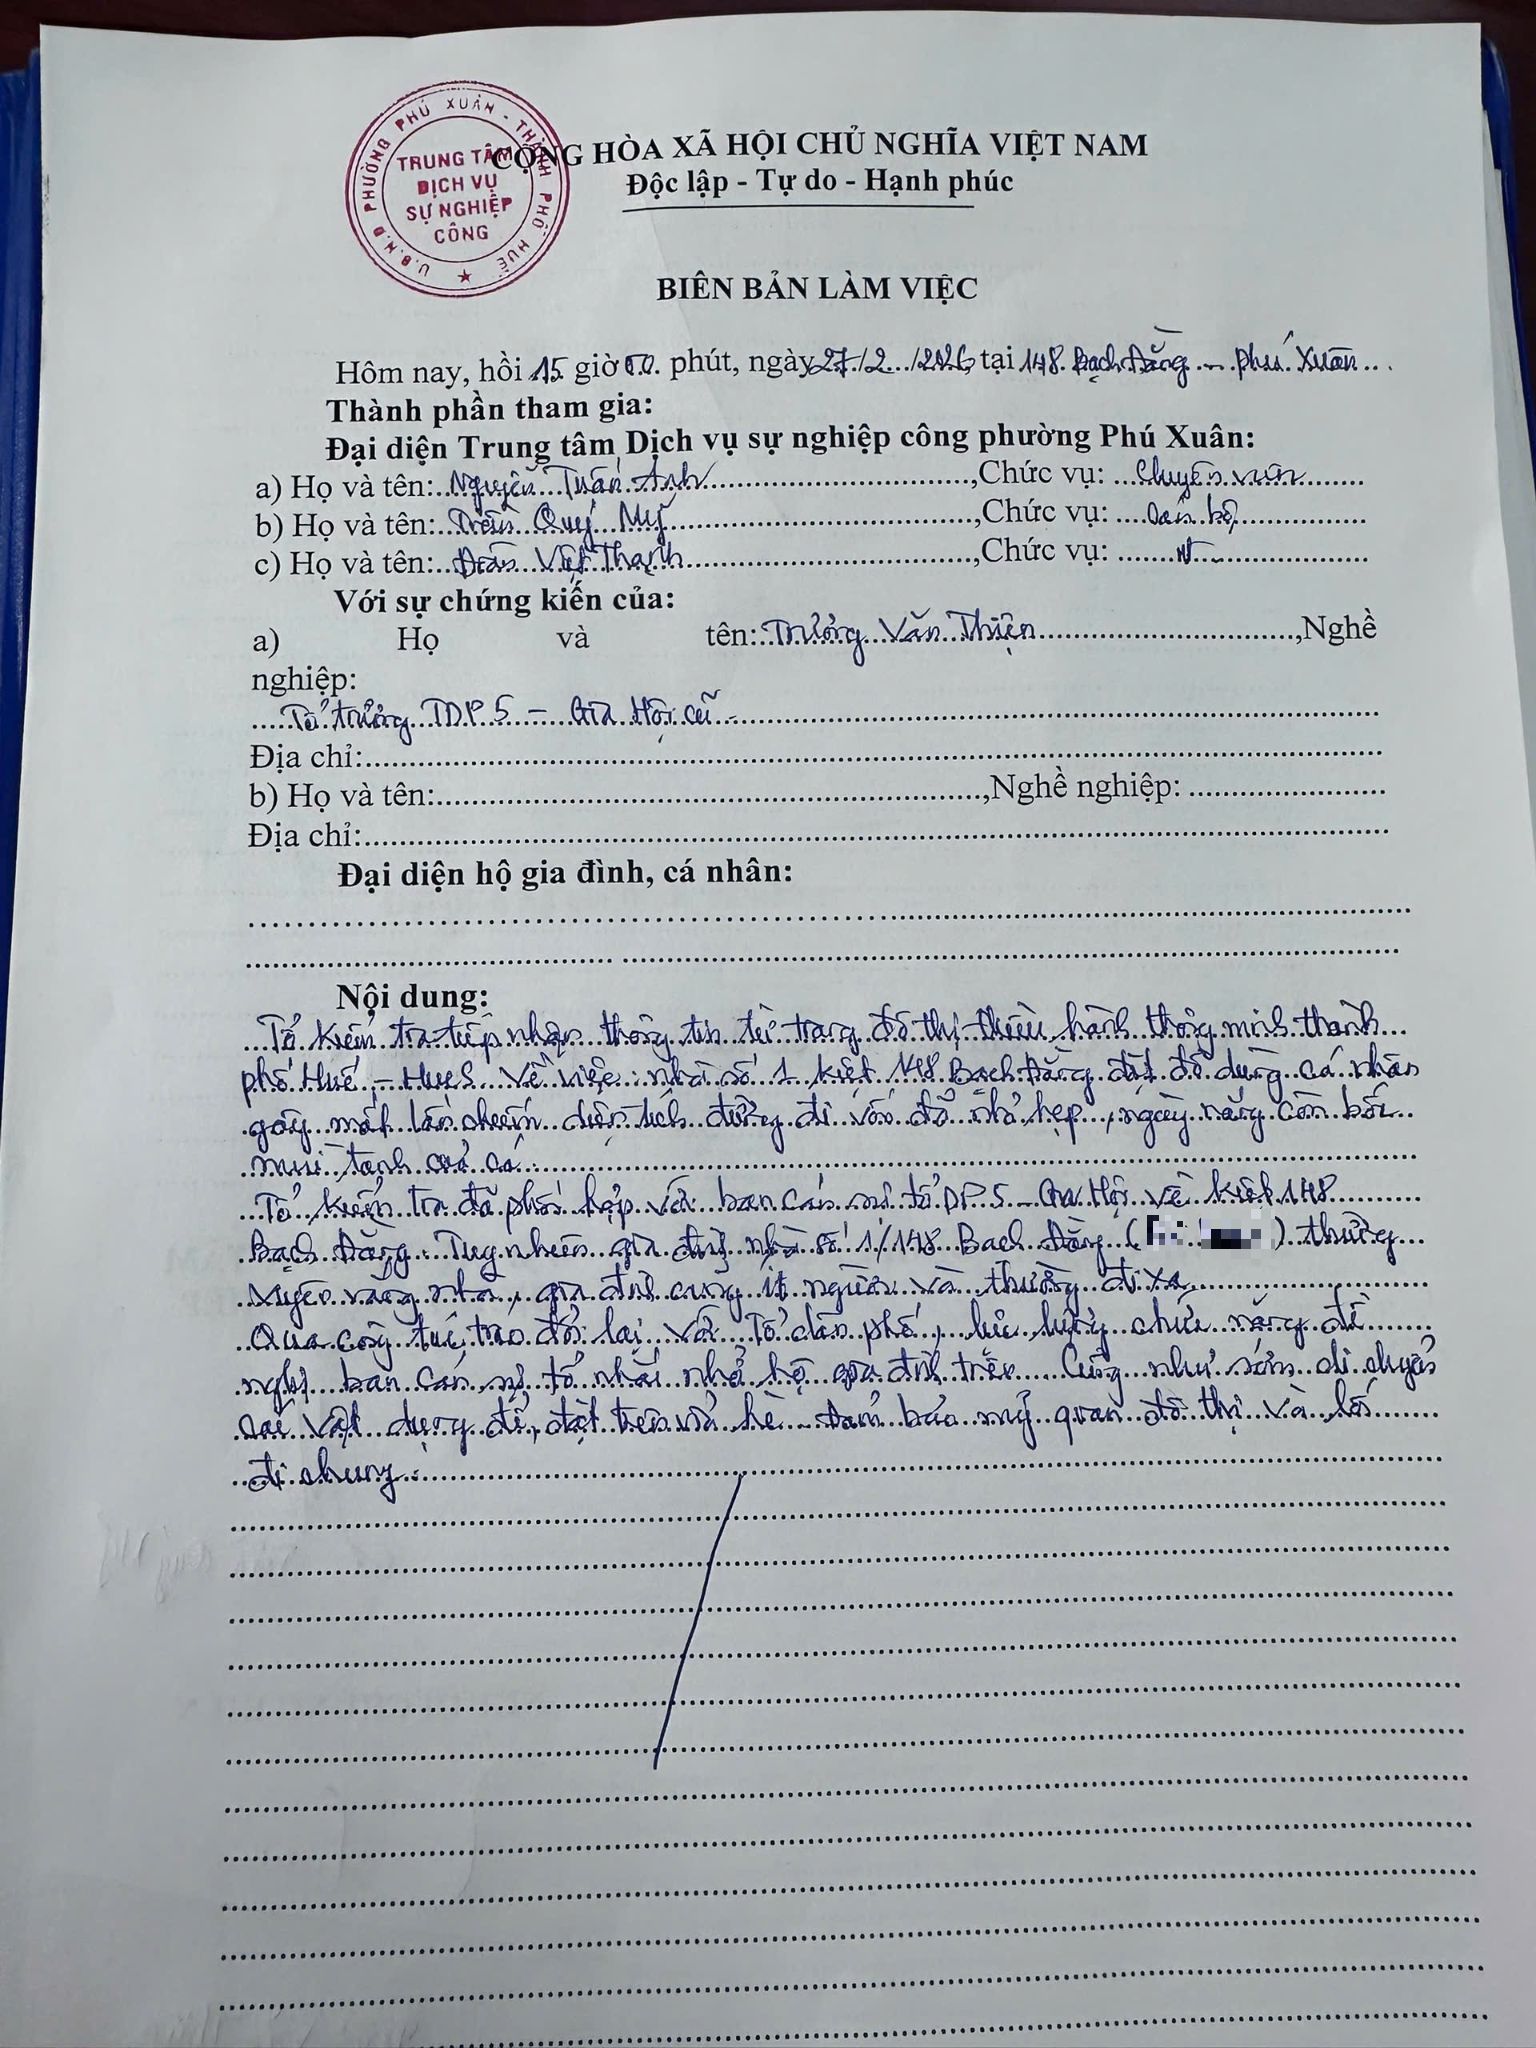 U.B.N.D PHƯỜNG PHÚ XUÂN - THÀNH PHỐ HUẾ
TRUNG TÂM
DỊCH VỤ
SỰ NGHIỆP
CÔNG
CỘNG HÒA XÃ HỘI CHỦ NGHĨA VIỆT NAM
Độc lập - Tự do - Hạnh phúc
BIÊN BẢN LÀM VIỆC
Hôm nay, hồi 15 giờ 00 phút, ngày 27/2/2026 tại 148 Bạch Đằng - Phú Xuân
Thành phần tham gia:
Đại diện Trung tâm Dịch vụ sự nghiệp công phường Phú Xuân:
a) Họ và tên: Nguyễn Tuấn Anh, Chức vụ: Chuyên viên
b) Họ và tên: Quý Mỹ, Chức vụ: Cán bộ
c) Họ và tên: Việt Thạnh, Chức vụ: nt
Với sự chứng kiến của:
a) Họ và tên: Trương Văn Thiện, Nghề
nghiệp:
Tổ trưởng TDP 5 - Gia Hội cũ
Địa chỉ:
b) Họ và tên:, Nghề nghiệp:
Địa chỉ:
Đại diện hộ gia đình, cá nhân:
Nội dung:
Tổ kiểm tra tiếp nhận thông tin từ trang đô thị thông minh thành
phố Huế - HueS về việc: nhà số 1 kiệt 148 Bạch Đằng đặt đồ dùng cá nhân
gây mất lấn chiếm diện tích đường đi vốn đã nhỏ hẹp, ngày nắng còn bốc
mùi tanh của cá.
Tổ kiểm tra đã phối hợp với ban cán sự tổ DP 5 - Gia Hội về kiệt 148
Bạch Đằng. Tuy nhiên gia đình nhà số 1/148 Bạch Đằng ( ) thường
xuyên vắng nhà, gia đình cũng ít người và thường đi xa.
Qua công tác trao đổi lại với Tổ dân phố, lực lượng chức năng đề
nghị ban cán sự tổ nhắc nhở hộ gia đình trên. Cũng như sớm di chuyển
các vật dụng để, đặt trên vỉa hè đảm bảo mỹ quan đô thị và lối
đi chung.